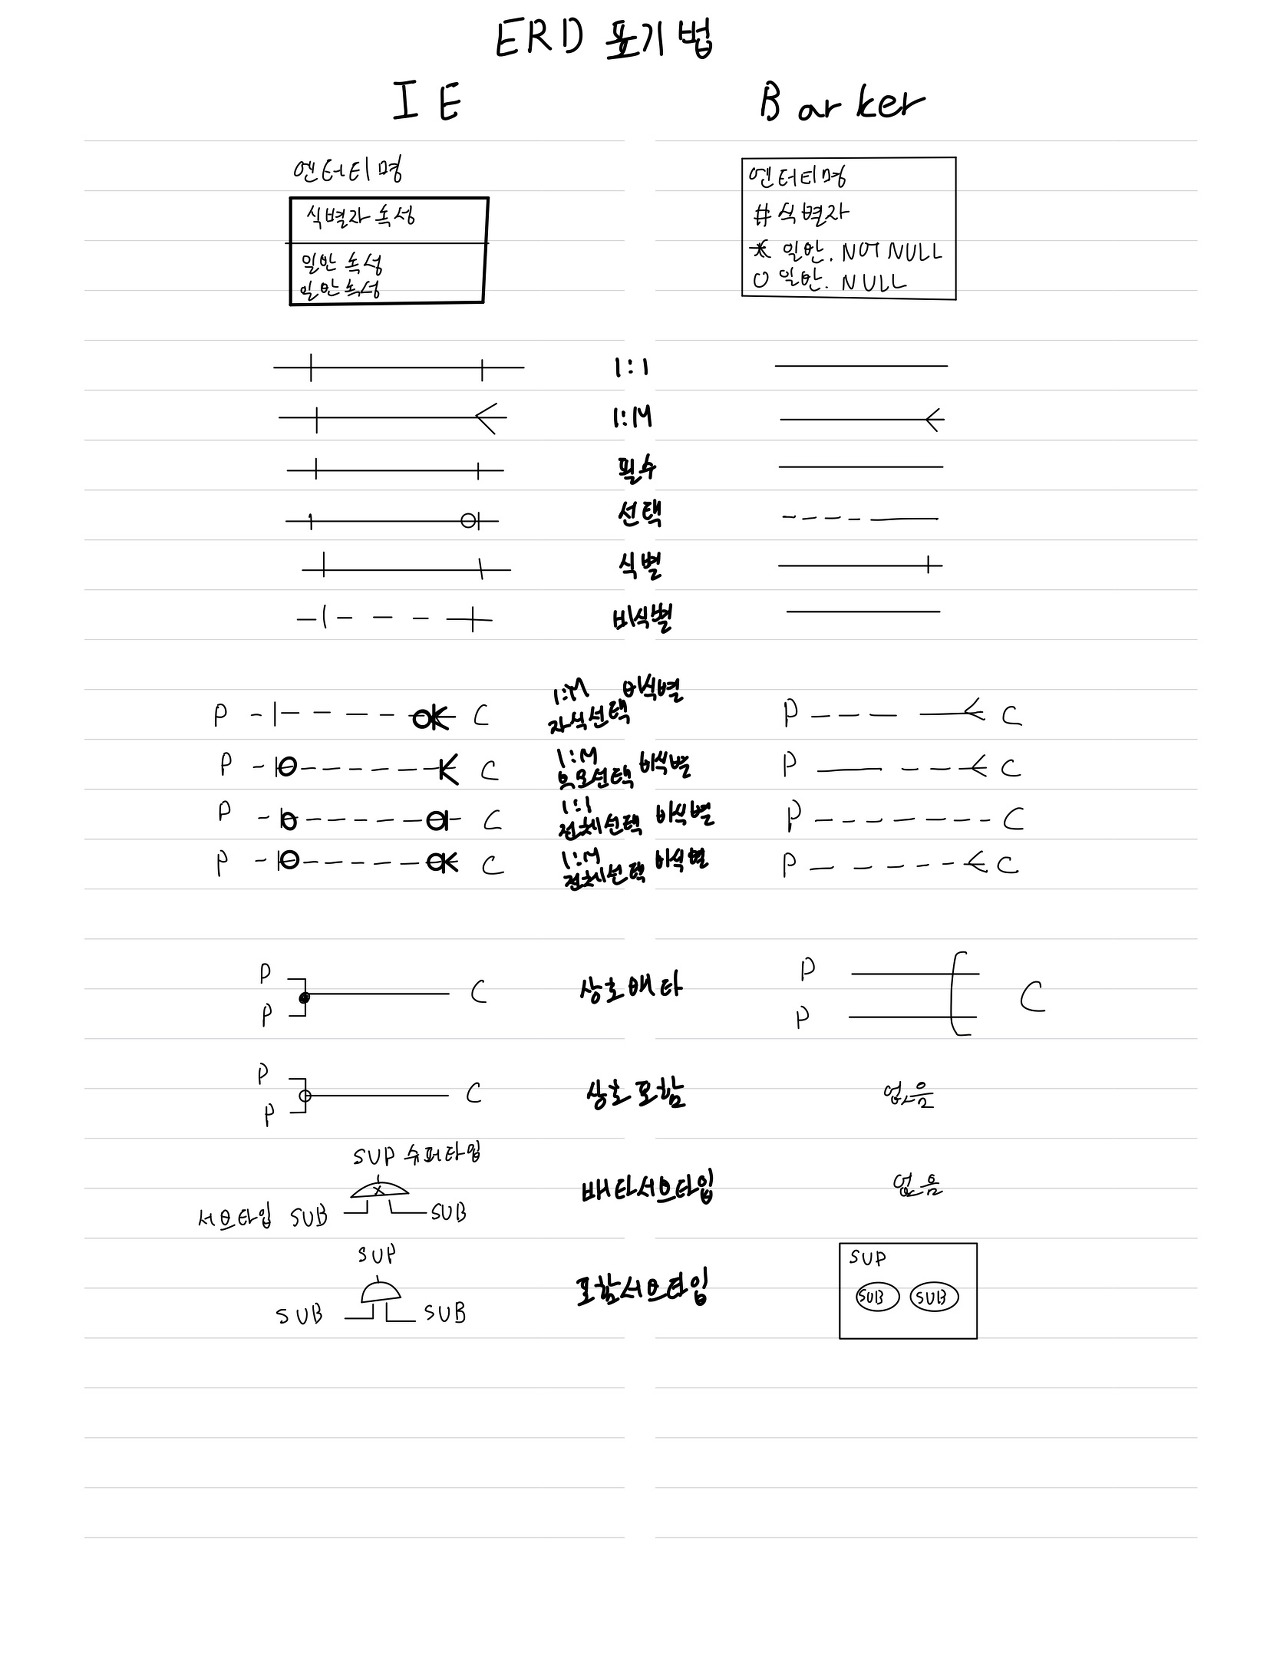 ERD 표기법
IE Barker
엔터티명
식별자 속성
일반 속성
일반속성
엔터티명
# 식별자
* 일반. NOT NULL
O 일반. NULL
1:1
1:M
필수
선택
식별
비식별
P C 1:M 비식별 P C
자식선택
P C 1:M P C
부모선택 비식별
P C 1:1 P C
전체선택 비식별
P C 1:M P C
전체선택 비식별
P P
C 상호배타 C
P P
P
C 상호포함 없음
P
SUP 슈퍼타입
배타서브타입 없음
서브타입 SUB SUB
SUP SUP
포함서브타입 SUB SUB
SUB SUB